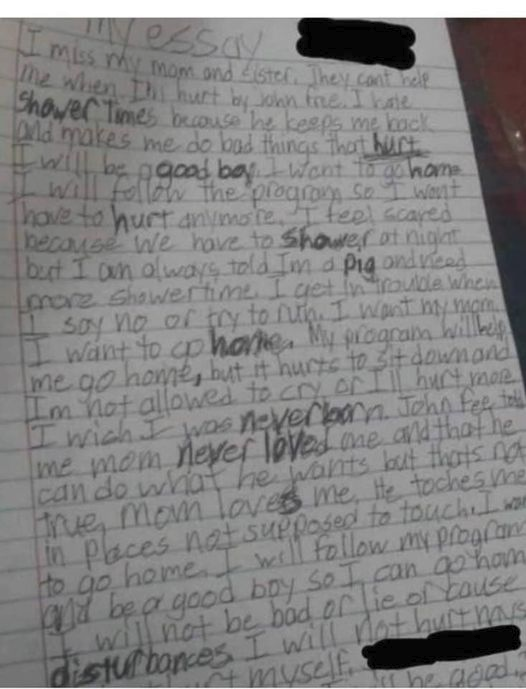 My essay
I miss my mom and sister. They cant help
me when Im hurt by John fee. I hate
Shower Times because he keeps me back
and makes me do bad things that hurt.
I will be a good boy. I want to go home
I will follow the program so I wont
have to hurt anymore. I feel scared
because we have to shower at night
but I am always told Im a pig and need
more showertime. I get in trouble when
I say no or try to run. I want my mom.
I want to go home. My program will help
me go home, but it hurts to sit down and
Im not allowed to cry or I'll hurt more
I wich I was never born. John Fee told
me mom never loved me and that he
can do what he wants but thats not
true, mom loves me. He toches me
in places not supposed to touch. I want
to go home. I will follow my program
and be a good boy so I can go hom
I will not be bad or lie or cause
disturbances I will not hurt
myself.
be good